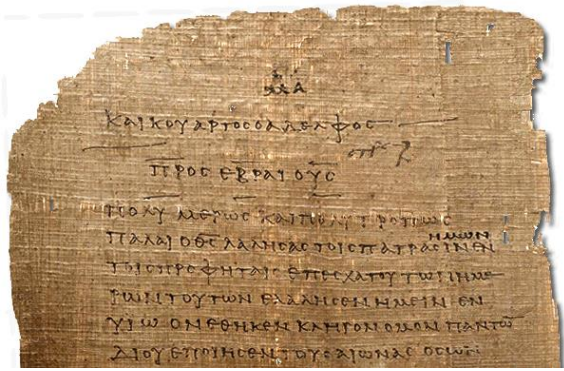 ΜΑ
ΚΑΙ ΚΟΥΑΡΤΟΣ Ο ΑΔΕΛΦΟΣ
ΠΡΟΣ ΕΒΡΑΙΟΥΣ
ΠΟΛΥΜΕΡΩΣ ΚΑΙ ΠΟΛΥΤΡΟΠΩΣ
ΗΜΩΝ
ΠΑΛΑΙ Ο ΘΣ ΛΑΛΗΣΑΣ ΤΟΙΣ ΠΑΤΡΑΣΙΝ ΕΝ
ΤΟΙΣ ΠΡΟΦΗΤΑΙΣ ΕΠ ΕΣΧΑΤΟΥ ΤΩΝ ΗΜΕ
ΡΩΝ ΤΟΥΤΩΝ ΕΛΑΛΗΣΕΝ ΗΜΕΙΝ ΕΝ
ΥΙΩ ΟΝ ΕΘΗΚΕΝ ΚΛΗΡΟΝΟΜΟΝ ΠΑΝΤΩ̅
ΔΙ ΟΥ ΕΠΟΙΗΣΕΝ ΤΟΥΣ ΑΙΩΝΑΣ ΟΣ ΩΝ